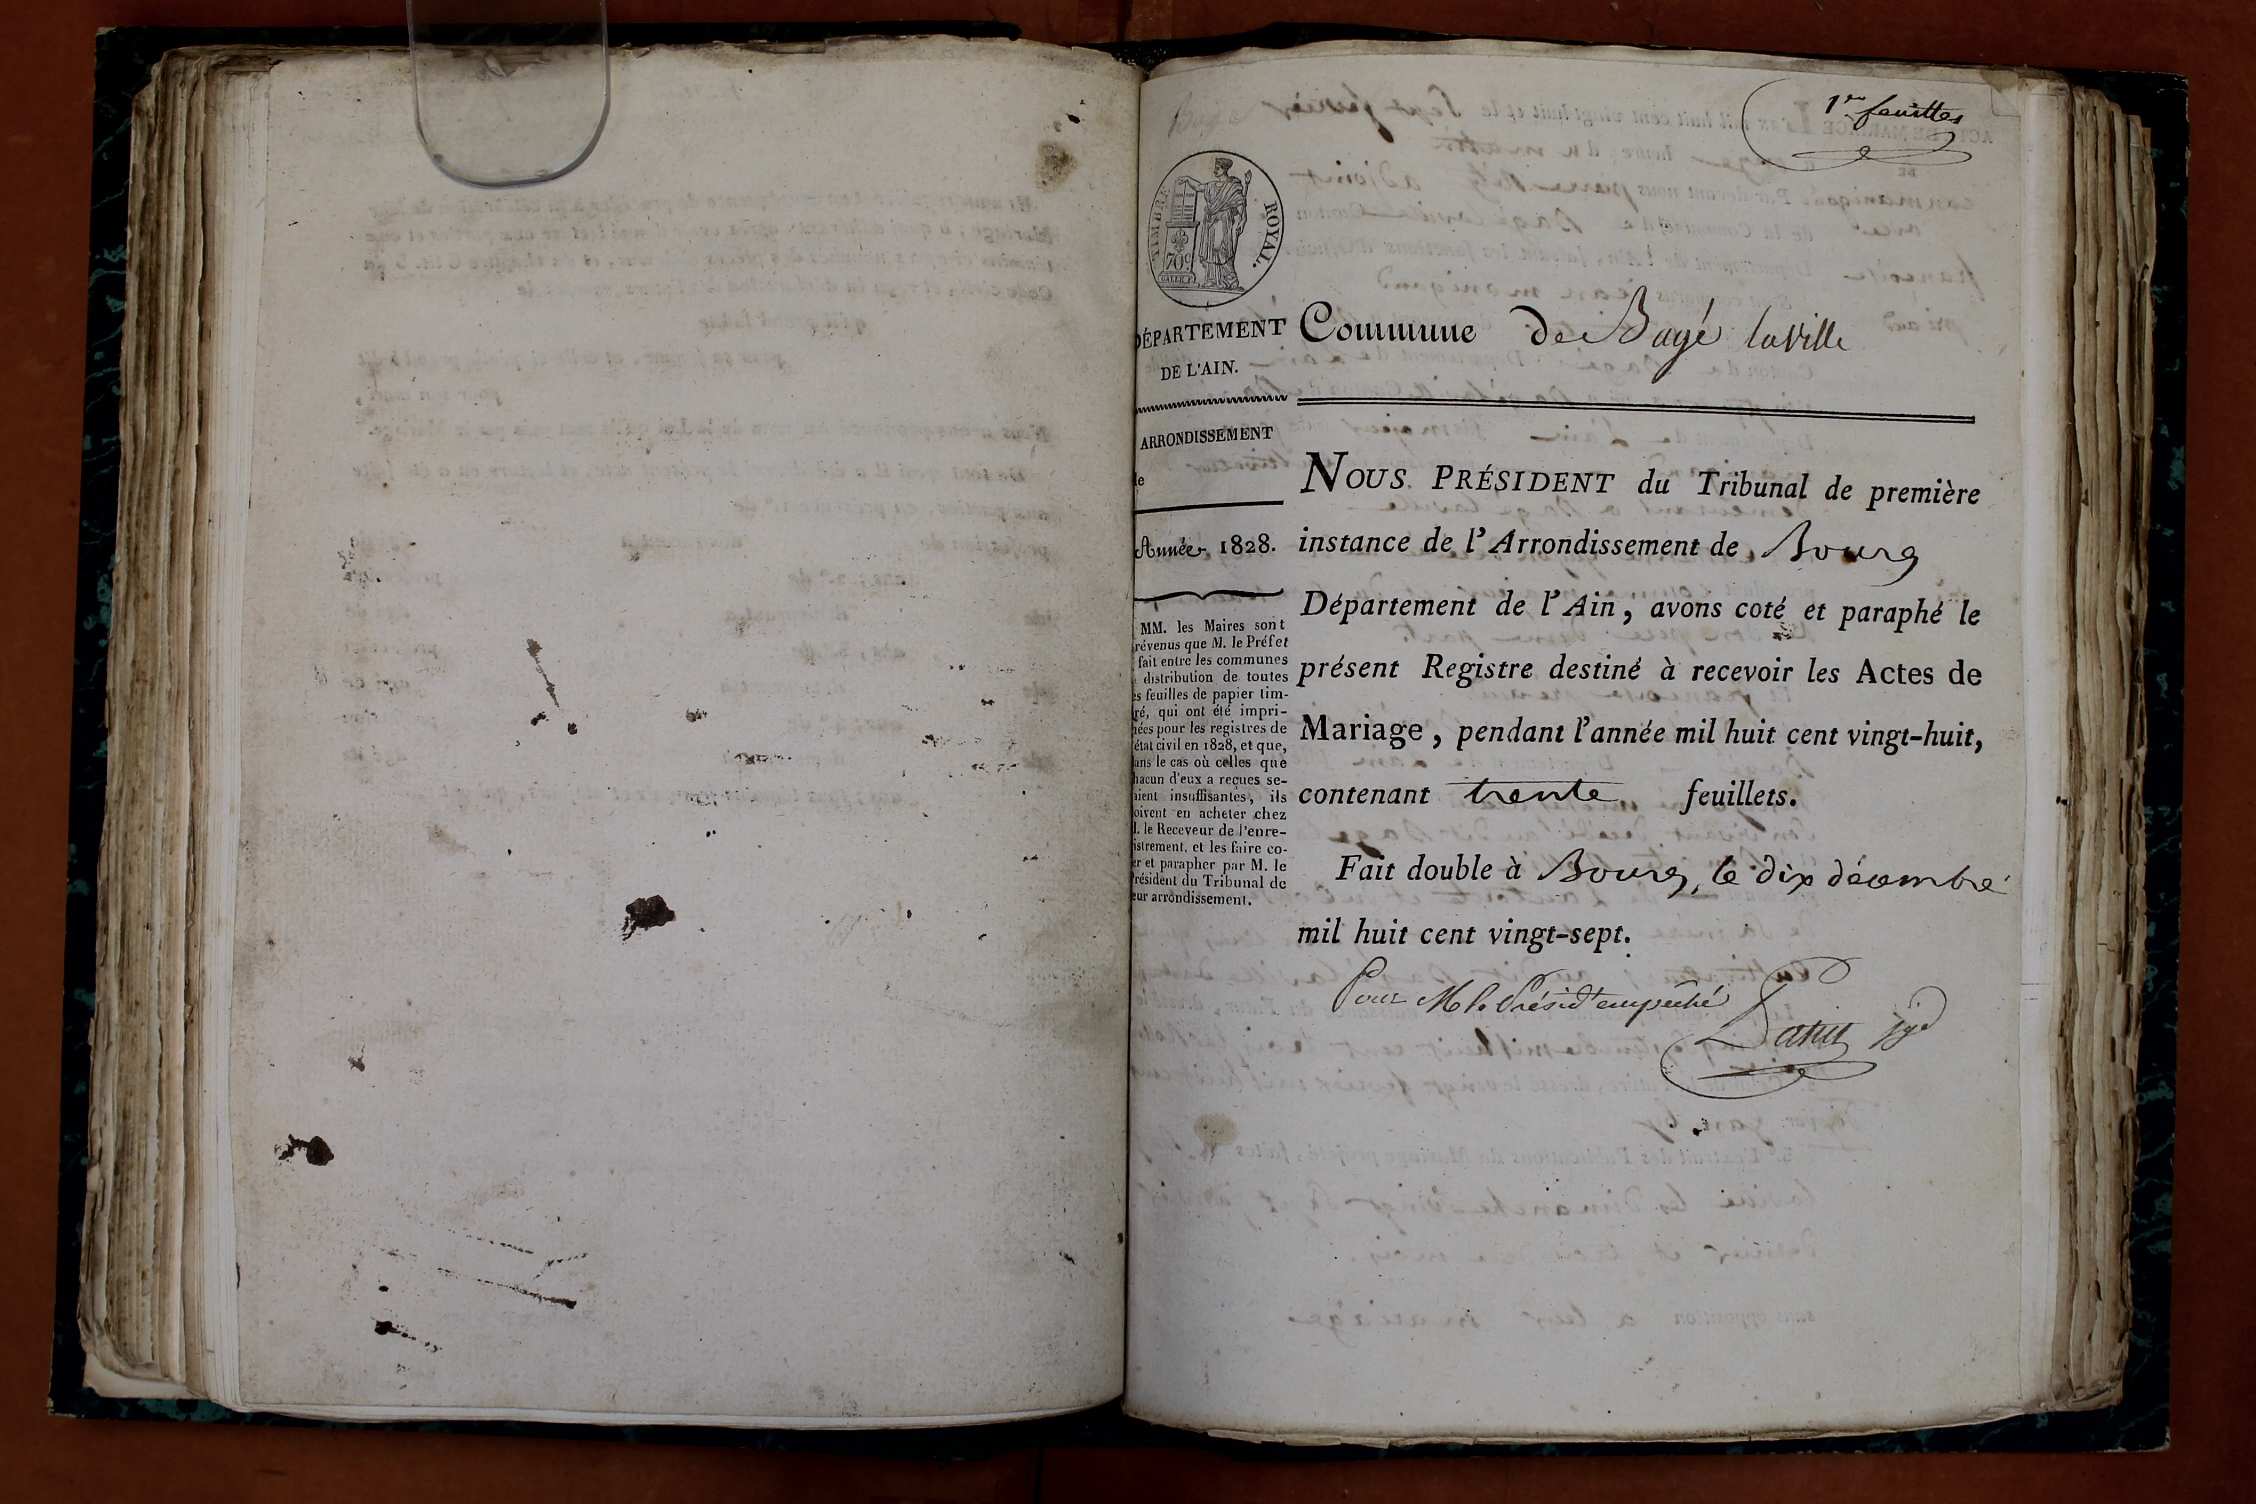 1er feuillet
TIMBRE ROYAL.
70c
DÉPARTEMENT
DE L'AIN.
ARRONDISSEMENT
de
Année 1828.
MM. les Maires sont
prévenus que M. le Préfet
fait entre les communes
distribution de toutes
es feuilles de papier tim-
ré, qui ont été impri-
mées pour les registres de
état civil en 1828, et que,
ans le cas où celles que
hacun d'eux a reçues se-
aient insuffisantes, ils
oivent en acheter chez
M. le Receveur de l'enre-
istrement, et les faire co-
er et parapher par M. le
Président du Tribunal de
eur arrondissement.
Commune de Bagé laville
NOUS PRÉSIDENT du Tribunal de première
instance de l'Arrondissement de Bourg
Département de l'Ain, avons coté et paraphé le
présent Registre destiné à recevoir les Actes de
Mariage, pendant l'année mil huit cent vingt-huit,
contenant trente feuillets.
Fait double à Bourg, le dix décembre
mil huit cent vingt-sept.
Pour M. le Présidt empêché